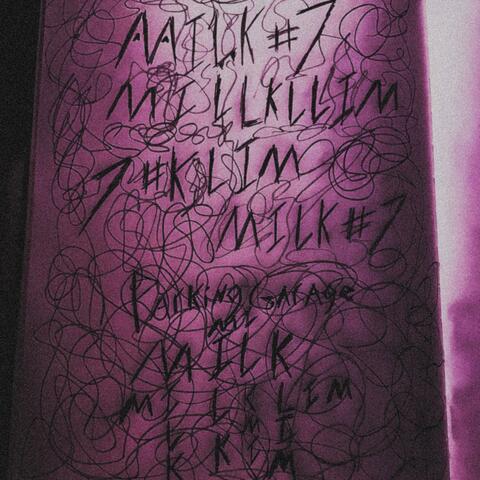 MILK#7
MILLKLLIM
7#KLIM
MILK#7
Parking Garage
MI
MILK
MILKLIM
L K M I
K K L
K M